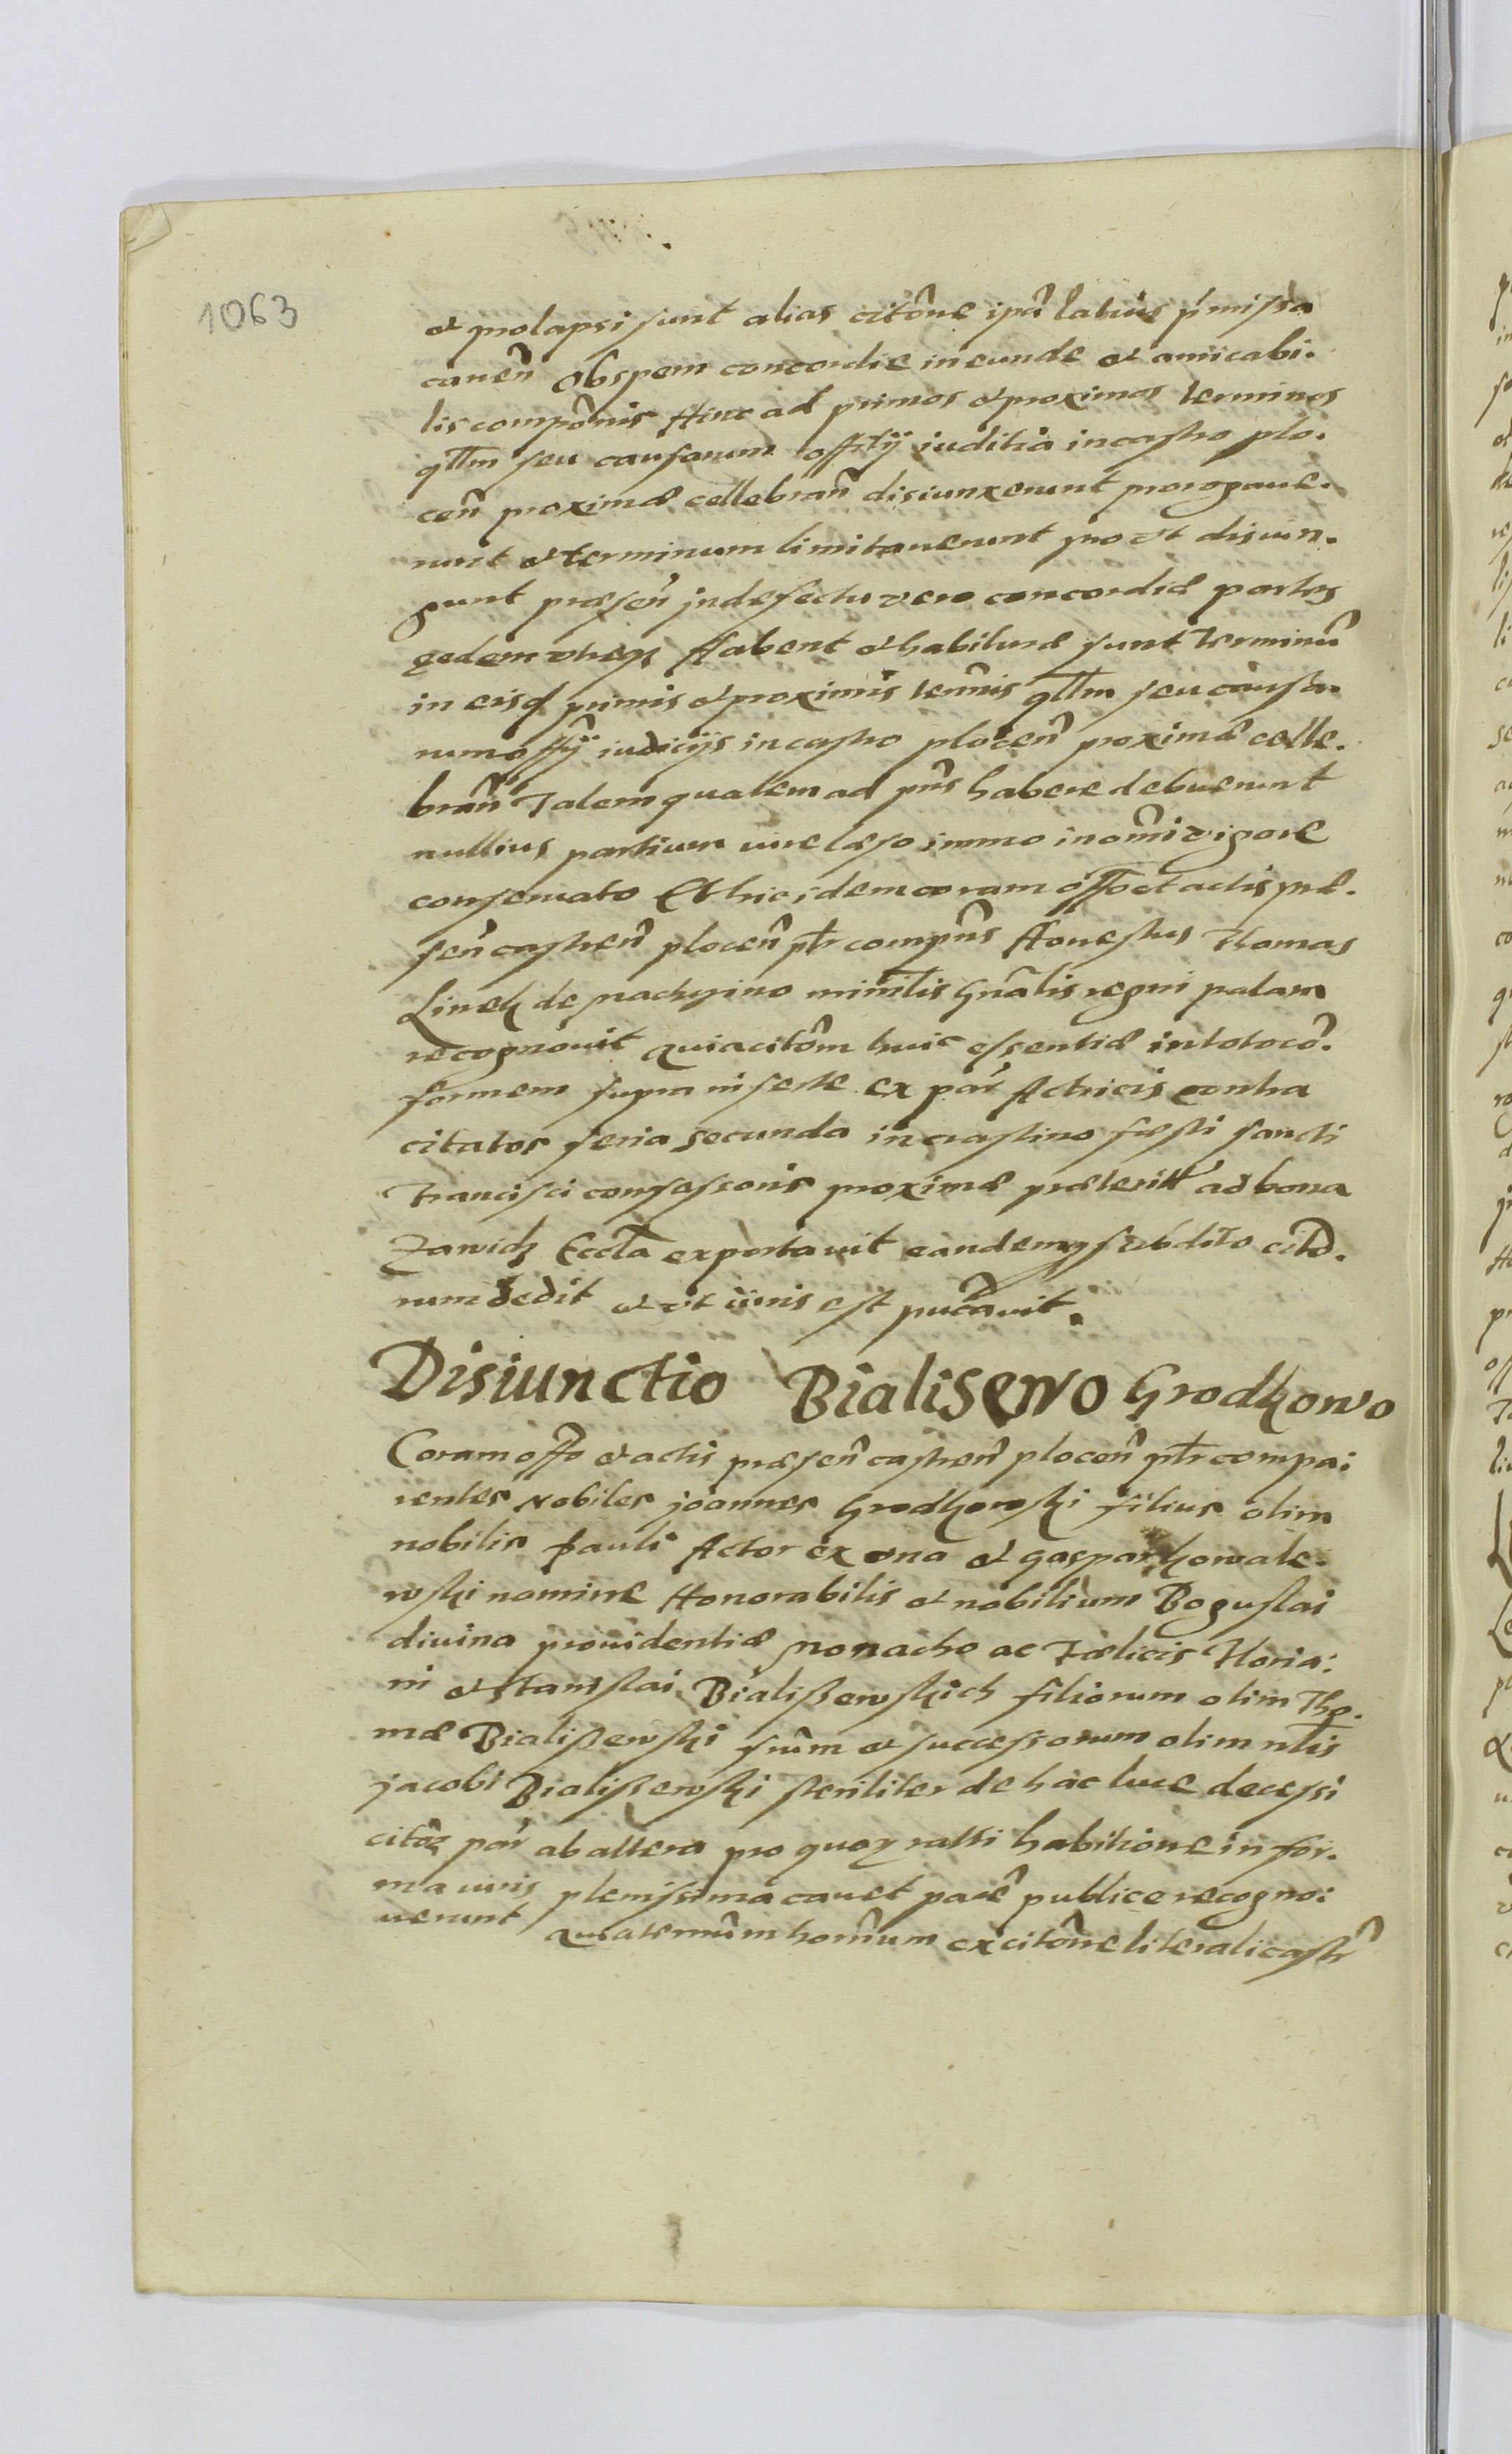 1063
et prolapsi sunt alias citõne ipã latius p̃missa
caueñ Obspem concordie ineunde et amicabi.
lis compõnis Hinc ad primos et proximos terminos
qllm seu causarum offitÿ iuditia in castro plo.
ceñ proximæ cellebrañ disiunxerunt prorogaue.
runt et terminum limitauerunt pro vt disiun.
gunt præseñ jn defectu vero concordiæ partes
eædem vtreqz Habent et habituræ sunt terminũ
in eisd primis et proximis termĩs qllm seu causa.
rum offÿ iudicÿs in castro ploceñ proximæ celle.
brañ Talem qualem ad pñs habere debuerunt
nullius partium iure læso immo in om̃i vigore
conseruato Et hic idem coram offo et actis præ.
señ castreñ ploceñ pĺr compñs Honestus Thomas
Linek de nactyrino minĩlis Gñalis regni palam
recognouit Quia citõm huic essentiæ in toto cõ.
formem supra insertæ ex par̃ Actricis contra
citator feria secunda in crastino festi sancti
Francisci confessoris proximæ præterit̃ ad bona
Zawidz Eccĺa exportauit eandemqz subdito citõ.
rum dedit et vt iuris est puᵬcauit.
Disiunctio Bialisewo Grodkowo
Coram offo et actis præseñ castreñ ploceñ pĺr compa:
rentes Nobiles joannes Grodkowski filius olim
nobilis Pauli Actor ex vna et gaspar kowale.
wski nomine Honorabilis et nobilium Boguslai
diuina prouidentiæ monacho ac Fælicis Floria:
ni et Stanislai Bialißewskich filiorum olim Tho.
mæ Bialißewski frũm et successorum olim nĺis
jacobi Bialißewski steriliter de hac luce decessi
citõr par̃ ab altera pro quorz ratti habitione in for.
ma iuris plenissima cauet paree publice recogno:
uerunt Quia termĩm hom̃um ex citõne literali castr̃